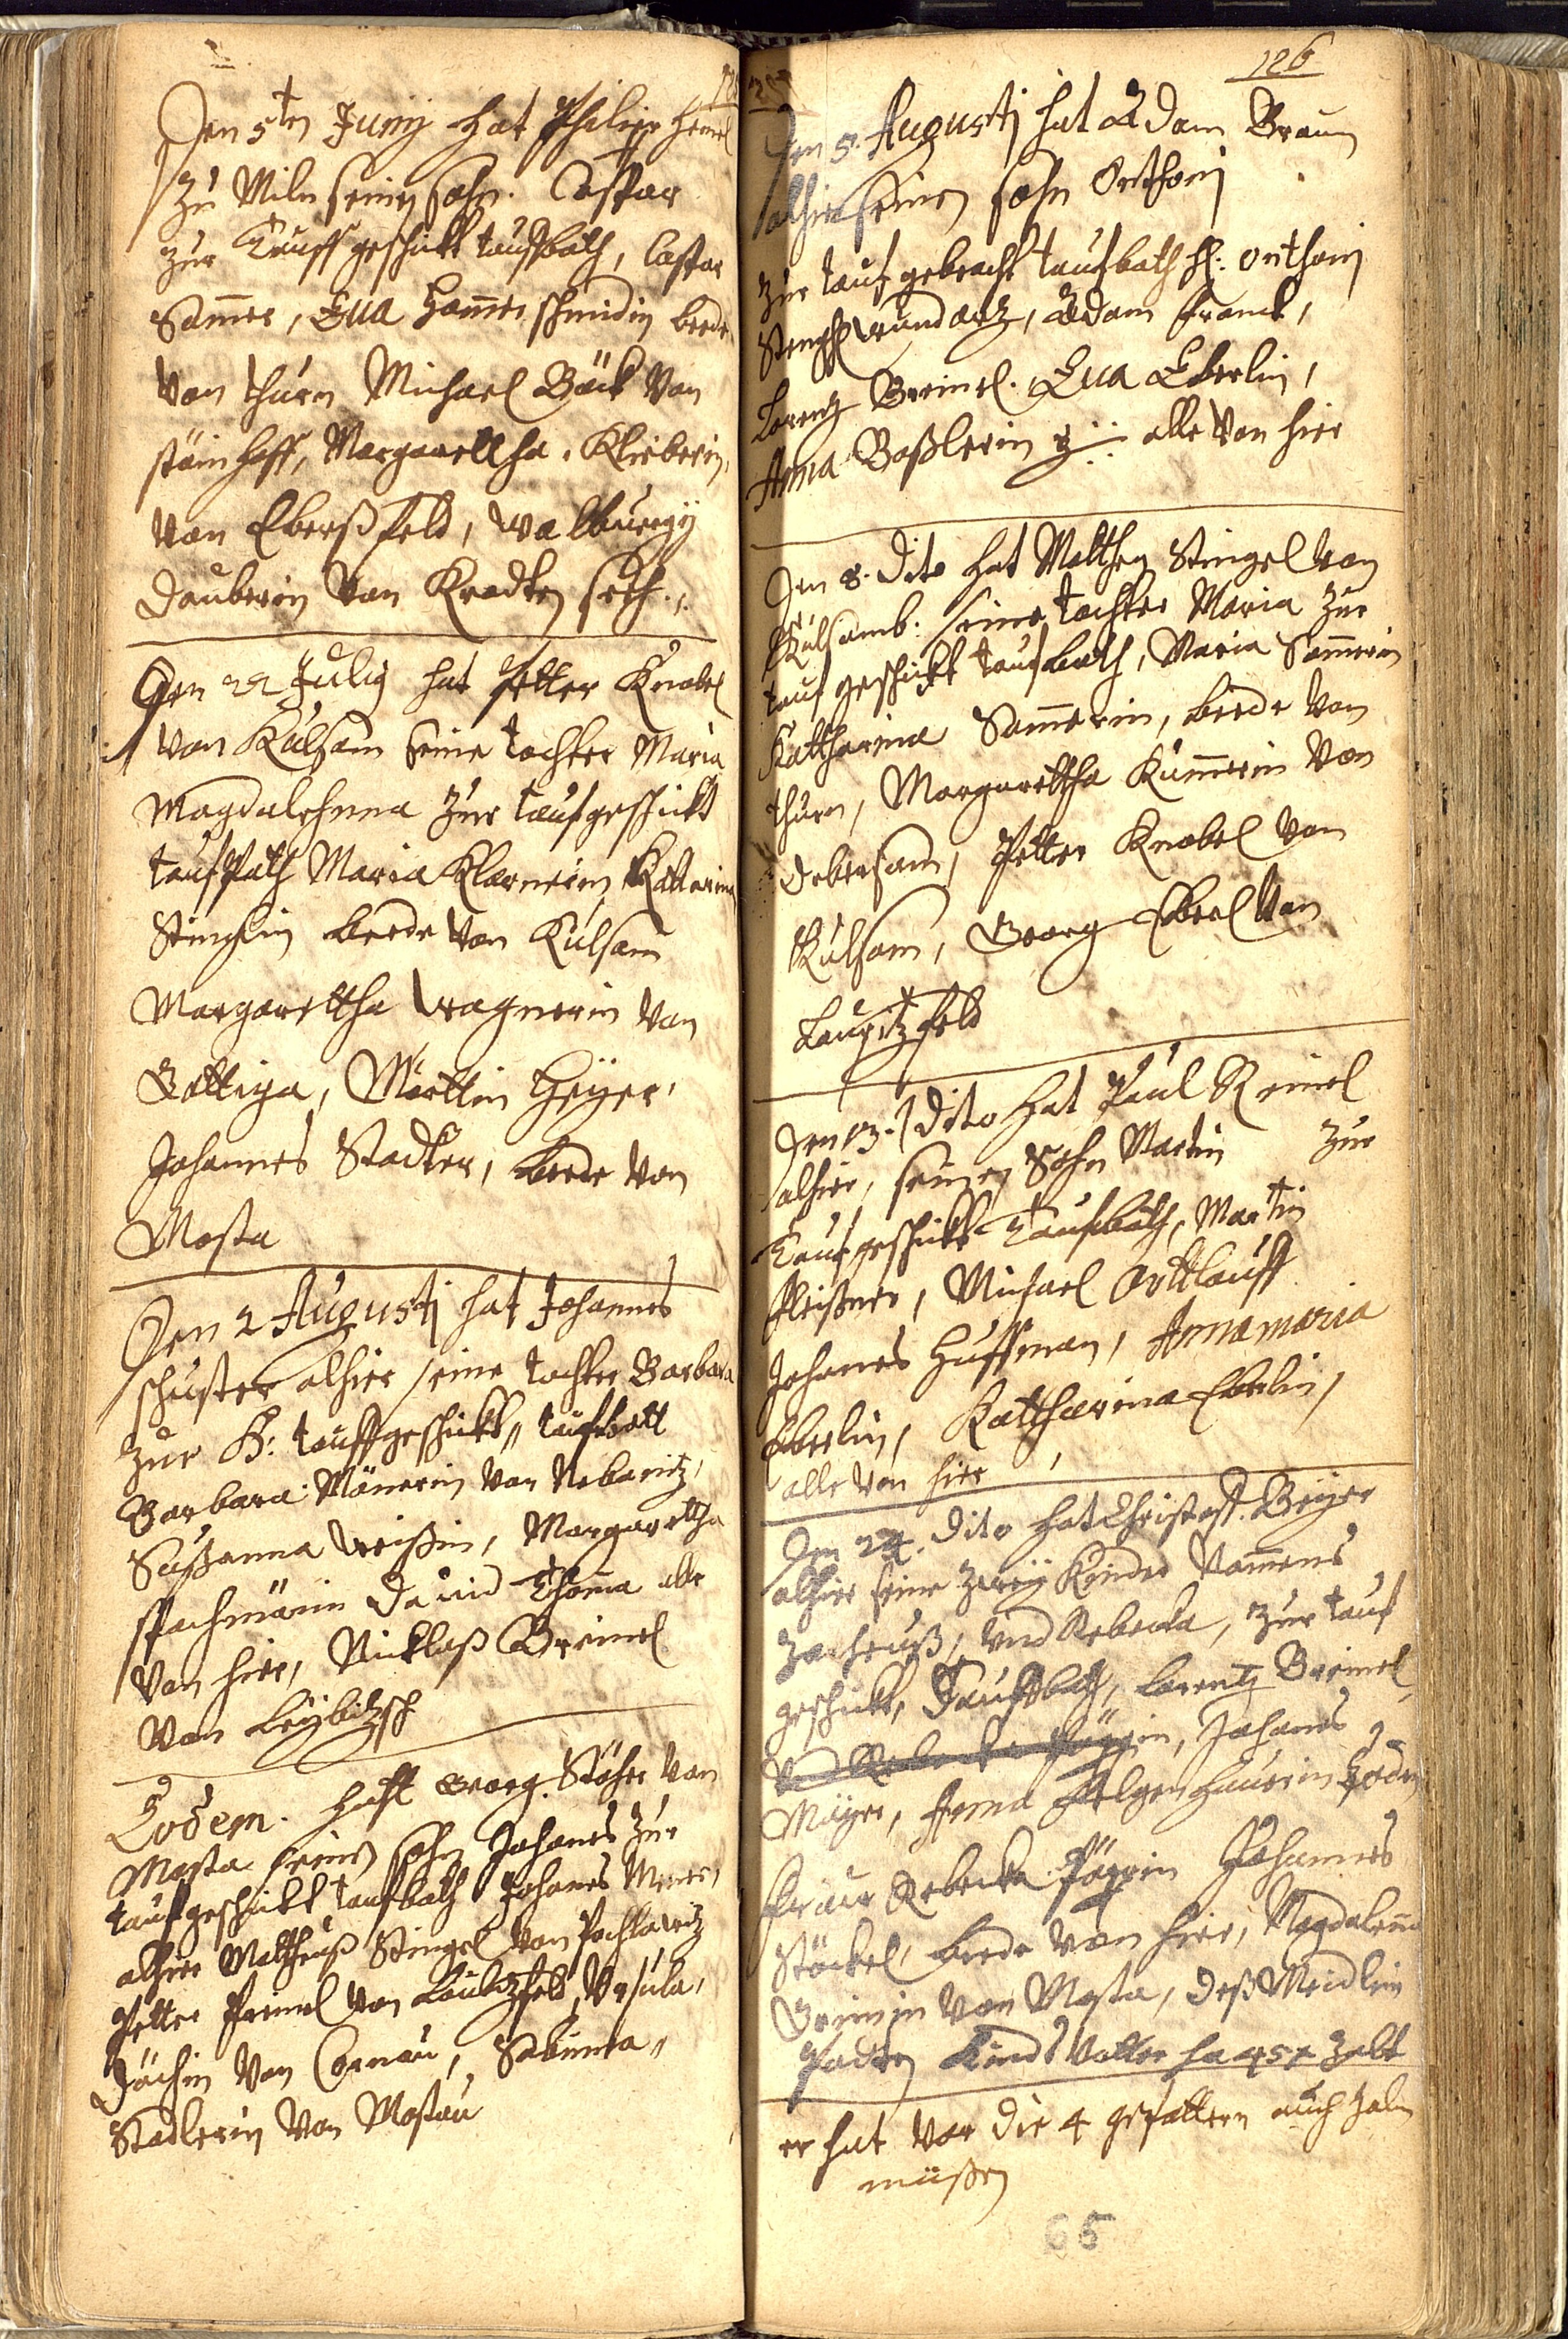 Den 5ten Junij hat Philipp Heinel
Zu Miln seinen sohn. Casper
zur Tauff geschickt taufbath, Casper
Sam̄er, Eua Ham̄erschmidin beede
von thurn Michael Bäck von
stäinhoff, Margarettha. Klieberin,
von Eberßfeld, walburgÿ
Dauberin von
Den 22 Julij hat Petter Knobel
von Külsam seine tochter Maria
Magdalehnna zur tauf geschickt
tauf Path Maria Klarnerin Katterina
Stinglin beede von Külsam
Margarettha wagnerin von
Gottiga, Märttin Heÿer,
Johannes Stadler, beede von
Mosta
Den 2 Augustj hat Johannes
schuster alhier seine tochter Barbara
zur H: tauff geschickt, taufbatt
Barbara Mänerin von Nebanitz,
Sußanna weißin, Margarettha
spachmänin Dauid Thoma alle
von hier, Nicklaß Greimel
von Leÿbitzsch
Eodem. hatt Georg. Stöhr von
Mosta seinen sohn Johanes zur
tauf geschickt taufbath Johanes
alhier Mattheuß Stingel von Pochlowitz
Petter Preimel von Laubitzfeld, Vrsula,
von Cornau, Sabinna,,
Stadlerin von Mostau
126
Den 5. Augustj hat Adam Braun
alhier seinen sohn Onthonj
zur tauf gebracht taufbath H: onthonj
Stengel wundartz, Adam Franck,
Lorentz Greimel. Eua Eberlin,
Anna Boßlerin alle von hier
Den 8. dito hat Mattheß Stingel von
Külsamb. seine tochter Maria zur
tauf geschickt taufbath, Maria Sam̄erin
Kattharina Sam̄erin, beede von
thurn, Margarettha Küm̄erin von
Dobersam, Petter Knobel von
Külsam, Georg Eberl von
Lauzitzfeld
Den 13. dito hat Paul Reinel
alhier, seinen Sohn Martin zur
Tauf geschickt Taufbath, Martin
Fleißner, Michael Orttlauff
Johanes Huffman, Annamaria
Eberlin, Kattharina Eberlin,
alle von hier
Den 24. dito hat Christoff. Beÿer
alhier seine zweÿ Kinder Nam̄ens
Zacheuß, vnd Rebecka, zur tauf
geschickt, Tauffbath, Lorentz Greimel,
Vnd Rebecka Pöppin, Johanes
Mäyer, Anna Felgenhauerin
Rebecka Pöppin Johannes
Stöckel, beede von hier, Magdalena
Greimin von Mosta, deß Meidlein
Padten Kinds Vatter ha 45 x zalt
er hat vor die 4 gefattern auch zaln
müßen
65